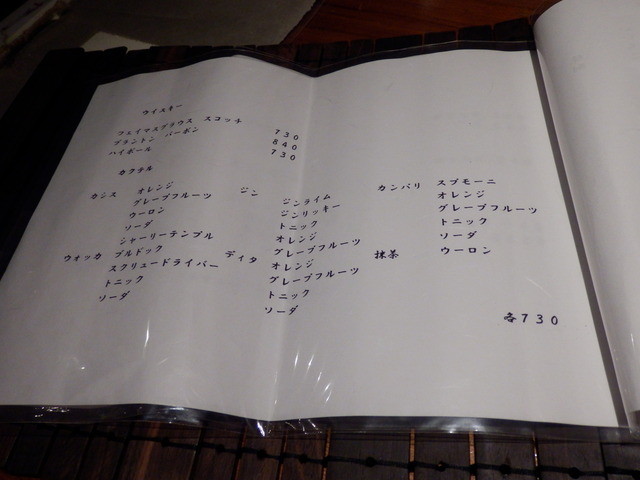 ウイスキー
フェイマスグラウス スコッチ 730
ブラントン バーボン 840
ハイボール 730
カクテル
カシス オレンジ
グレープフルーツ
ウーロン
ソーダ
シャーリーテンプル
ウォッカ ブルドック
スクリュードライバー
トニック
ソーダ
ジン ジンライム
ジンリッキー
トニック
オレンジ
グレープフルーツ
ディタ オレンジ
グレープフルーツ
トニック
ソーダ
カンパリ スプモーニ
オレンジ
グレープフルーツ
トニック
ソーダ
抹茶 ウーロン
各730